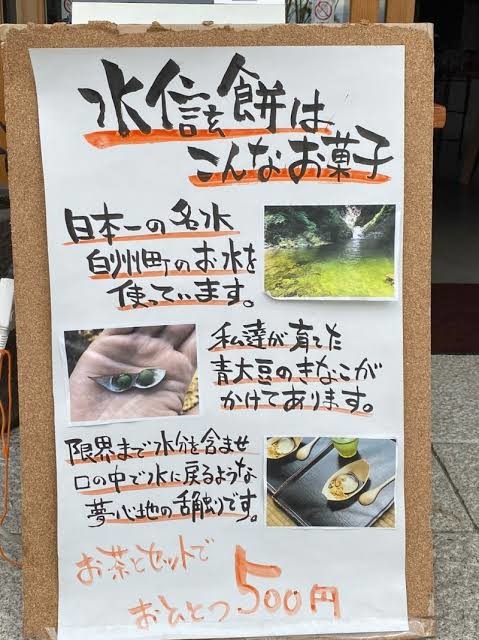 水信玄餅は
こんなお菓子
日本一の名水
白州町のお水を
使ています。
私達が育てた
青大豆のきなこが
かけてあります。
限界まで水分を含ませ
口の中で水に戻るような
夢心地の舌触りです。
お茶とセットで
おひとつ500円